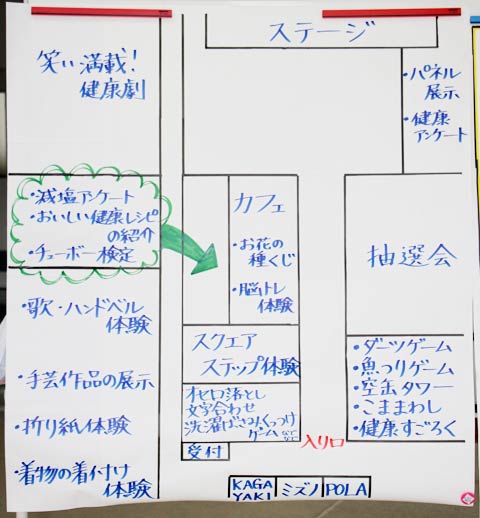 ステージ
笑い満載!
健康劇
・パネル
展示
・健康
アンケート
・減塩アンケート
・おいしい健康レシピ
の紹介
・チューボー検定
カフェ
・お花の
種くじ
・脳トレ
体験
抽選会
・歌・ハンドベル
体験
・手芸作品の展示
・折り紙体験
・着物の着付け
体験
スクエア
ステップ体験
オセロ落とし
文字合わせ
洗濯ばさみくっつけ
ゲームなどなど
受付
・ダーツゲーム
・魚つりゲーム
・空缶タワー
・こままわし
・健康すごろく
入り口
KAGA
YAKI
ミズノ
POLA